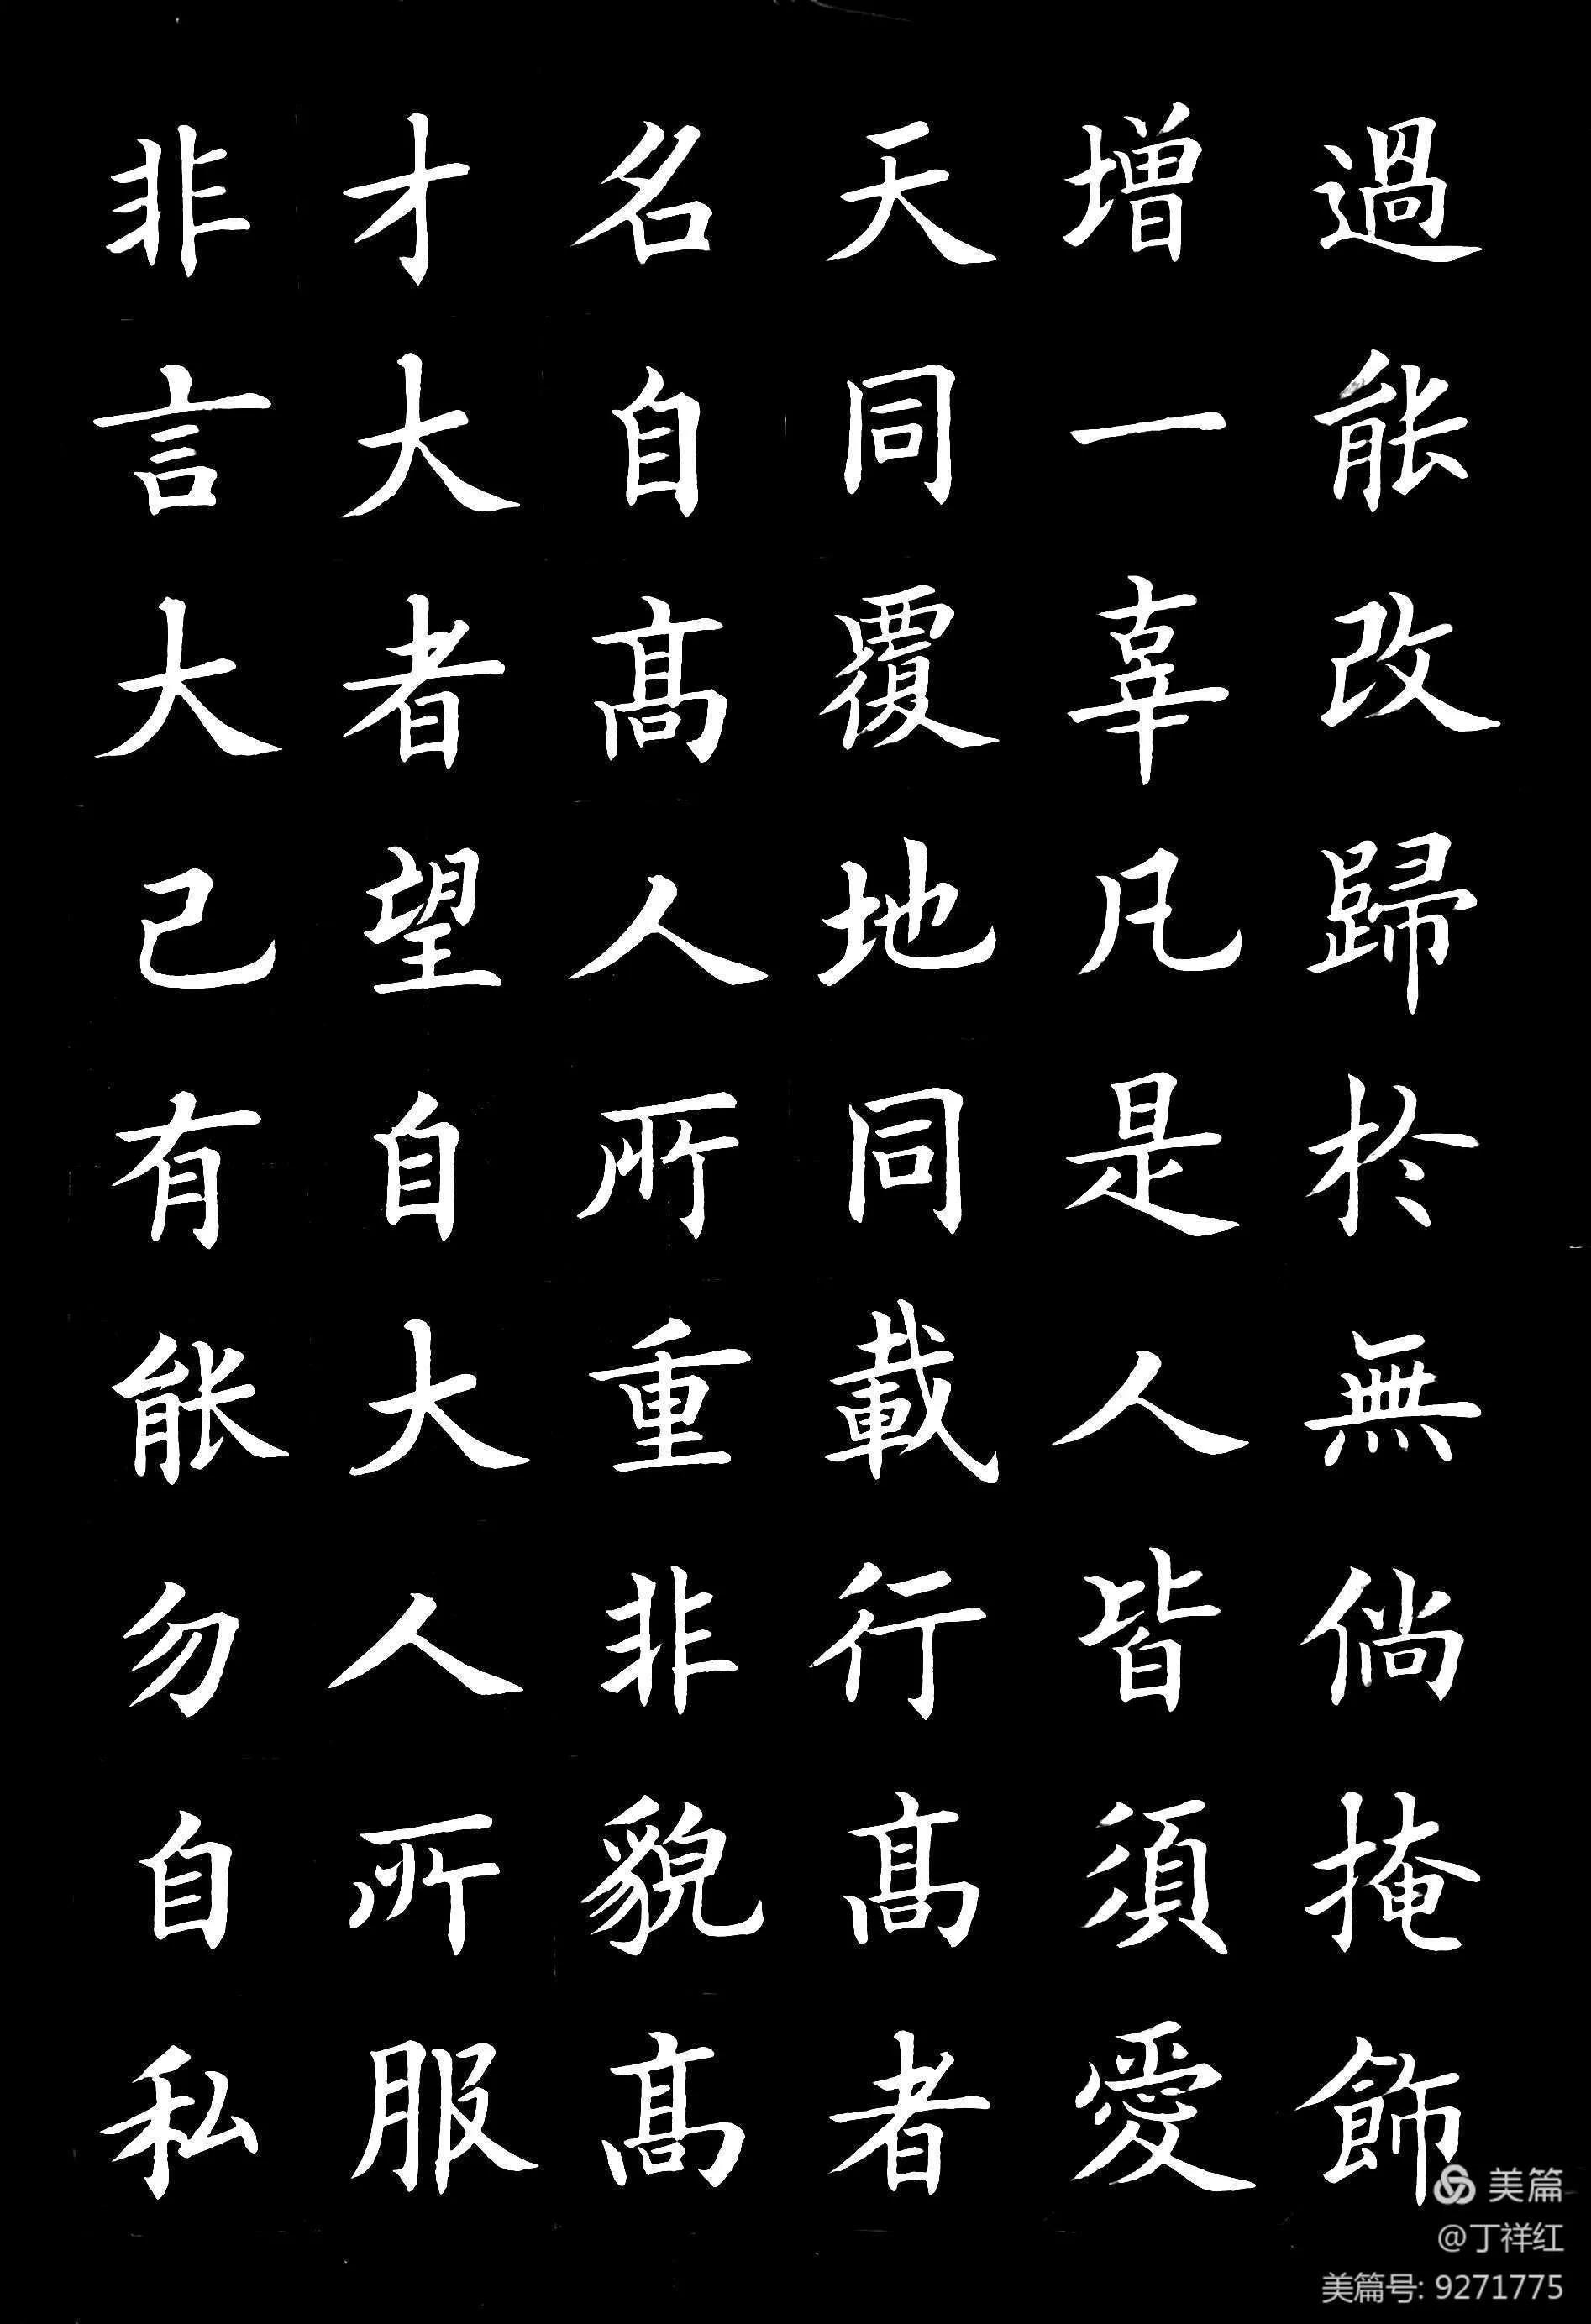 過能改歸於無倘掩飾
增一辜凡是人皆須愛
天同覆地同載行高者
名自高人所重非貌高
才大者望自大人所服
非言大己有能勿自私
美篇
@丁祥红
美篇号: 9271775